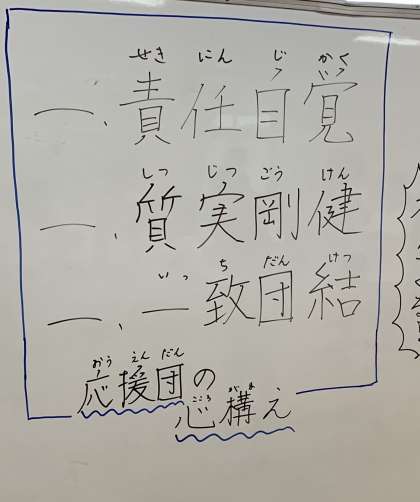 せき にん じ かく
一、責任自覚
しつ じつ ごう けん
一、質実剛健
いっ ち だん けつ
一、一致団結
おう えん だん
応援団の
ごころ がま
心構え